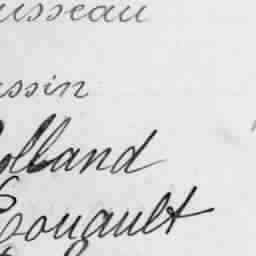 usseau
ssin
olland
Esouault